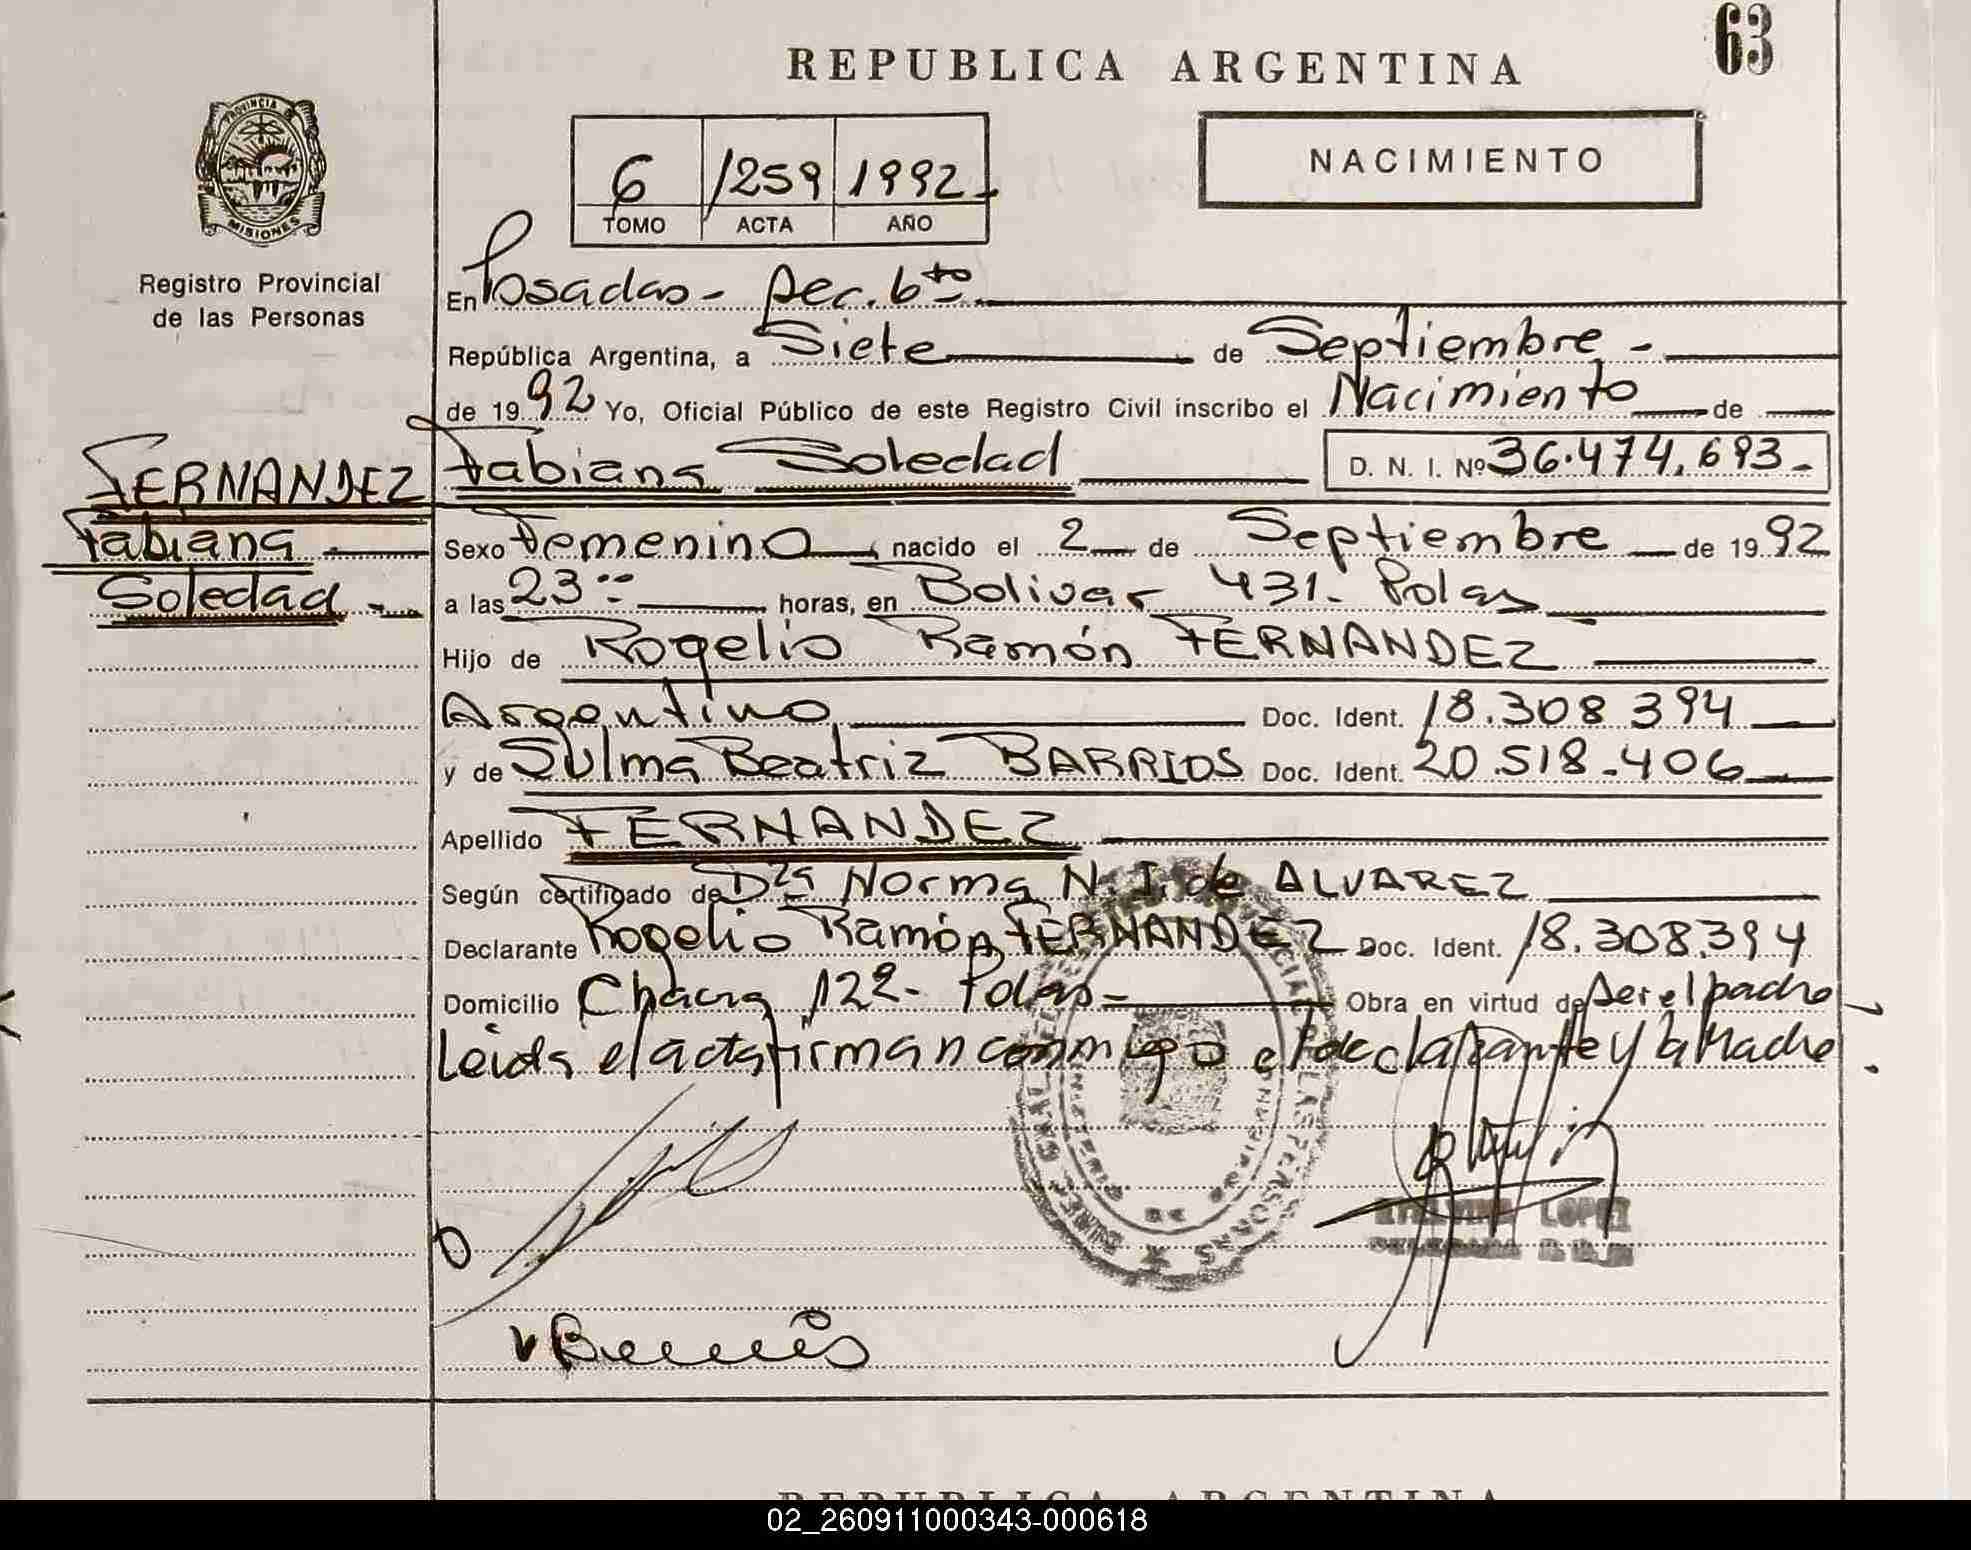 63
REPUBLICA ARGENTINA
PROVINCIA DE
MISIONES
NACIMIENTO
6 1259 1992
TOMO ACTA AÑO
Registro Provincial
de las Personas
En Posadas - Sec. 6to
República Argentina, a Siete de Septiembre -
de 1992 Yo, Oficial Público de este Registro Civil inscribo el Nacimiento de
FERNANDEZ Fabiana Soledad D. N. I. Nº 36.474.693-
Fabiana Sexo Femenino nacido el 2 de Septiembre de 1992
Soledad - a las 23 horas, en Bolivar 431- Pdas
Hijo de Rogelio Ramón FERNANDEZ
Argentino Doc. Ident. 18.308.394
y de Sulma Beatriz BARRIOS Doc. Ident. 20.518.406
Apellido FERNANDEZ
Según certificado de Dra Norma N. I. de ALVAREZ
Declarante Rogelio Ramón FERNANDEZ Doc. Ident. 18.308.394
Domicilio Chacra 122- Pdas- Obra en virtud de Ser el padre
Leida el acta firman conmigo el declarante y la Madre
LOPEZ
REPUBLICA ARGENTINA
02_260911000343-000618